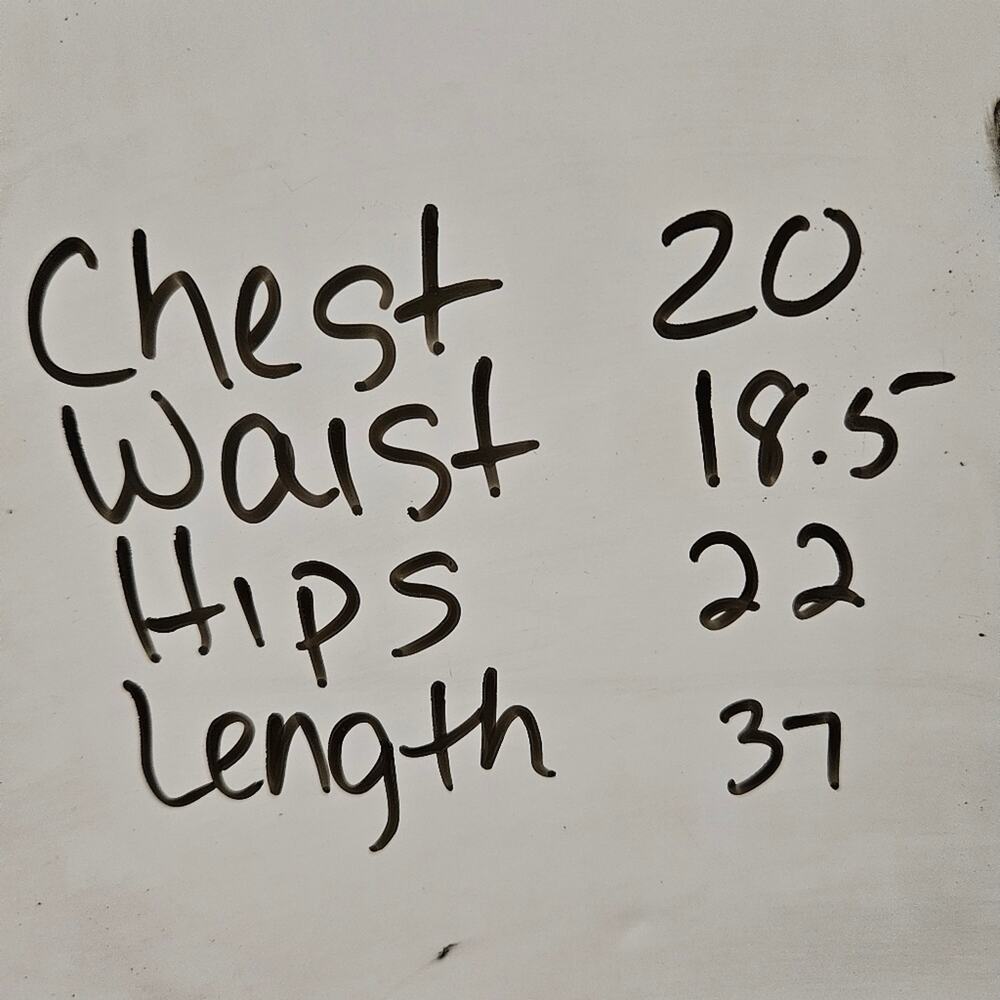 Chest 20
Waist 18.5
Hips 22
Length 37